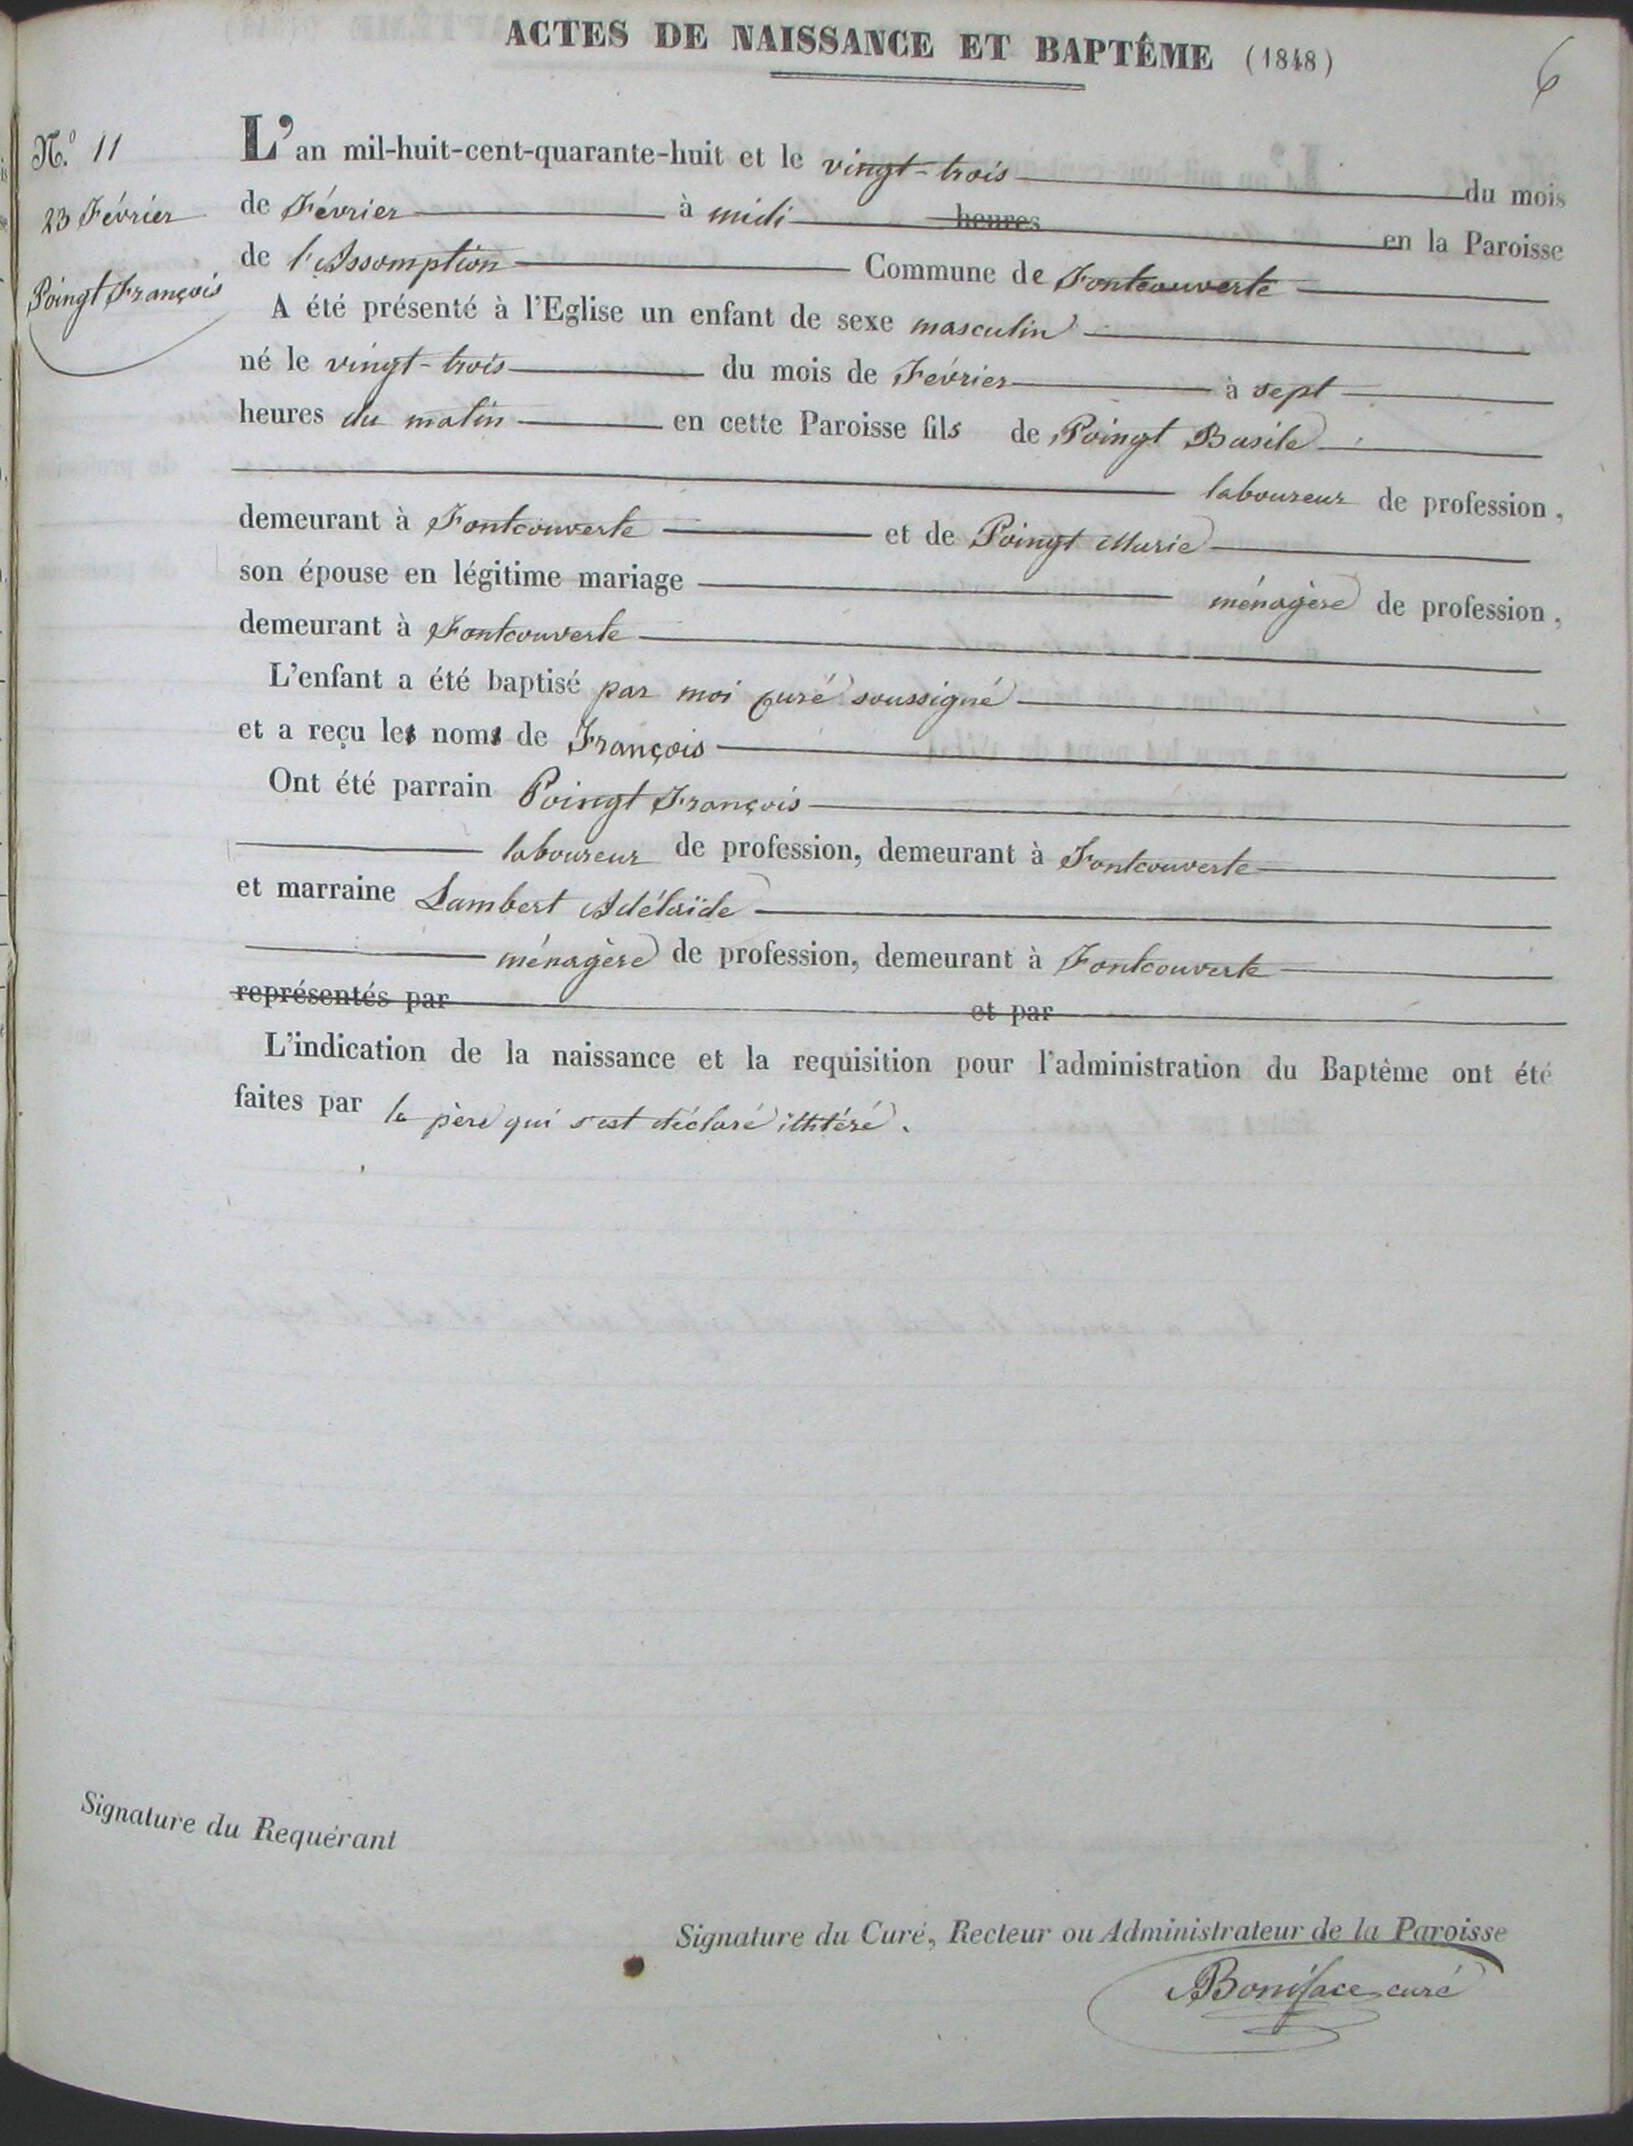 ACTES DE NAISSANCE ET BAPTÊME (1848)
6
N.º 11
23 Février
Poingt François
L'an mil-huit-cent-quarante-huit et le vingt-trois du mois
de Février à midi heures en la Paroisse
de l'Assomption Commune de Fontcouverte
A été présenté à l'Eglise un enfant de sexe masculin
né le vingt-trois du mois de Février à sept
heures du matin en cette Paroisse fils de Poingt Basile
laboureur de profession,
demeurant à Fontcouverte et de Poingt Marie
son épouse en légitime mariage ménagère de profession,
demeurant à Fontcouverte
L'enfant a été baptisé par moi curé soussigné
et a reçu les noms de François
Ont été parrain Poingt François
laboureur de profession, demeurant à Fontcouverte
et marraine Lambert Adélaïde
ménagère de profession, demeurant à Fontcouverte
représentés par et par
L'indication de la naissance et la requisition pour l'administration du Baptême ont été
faites par le père qui s'est déclaré illitéré.
Signature du Requérant
Signature du Curé, Recteur ou Administrateur de la Paroisse
Boniface curé